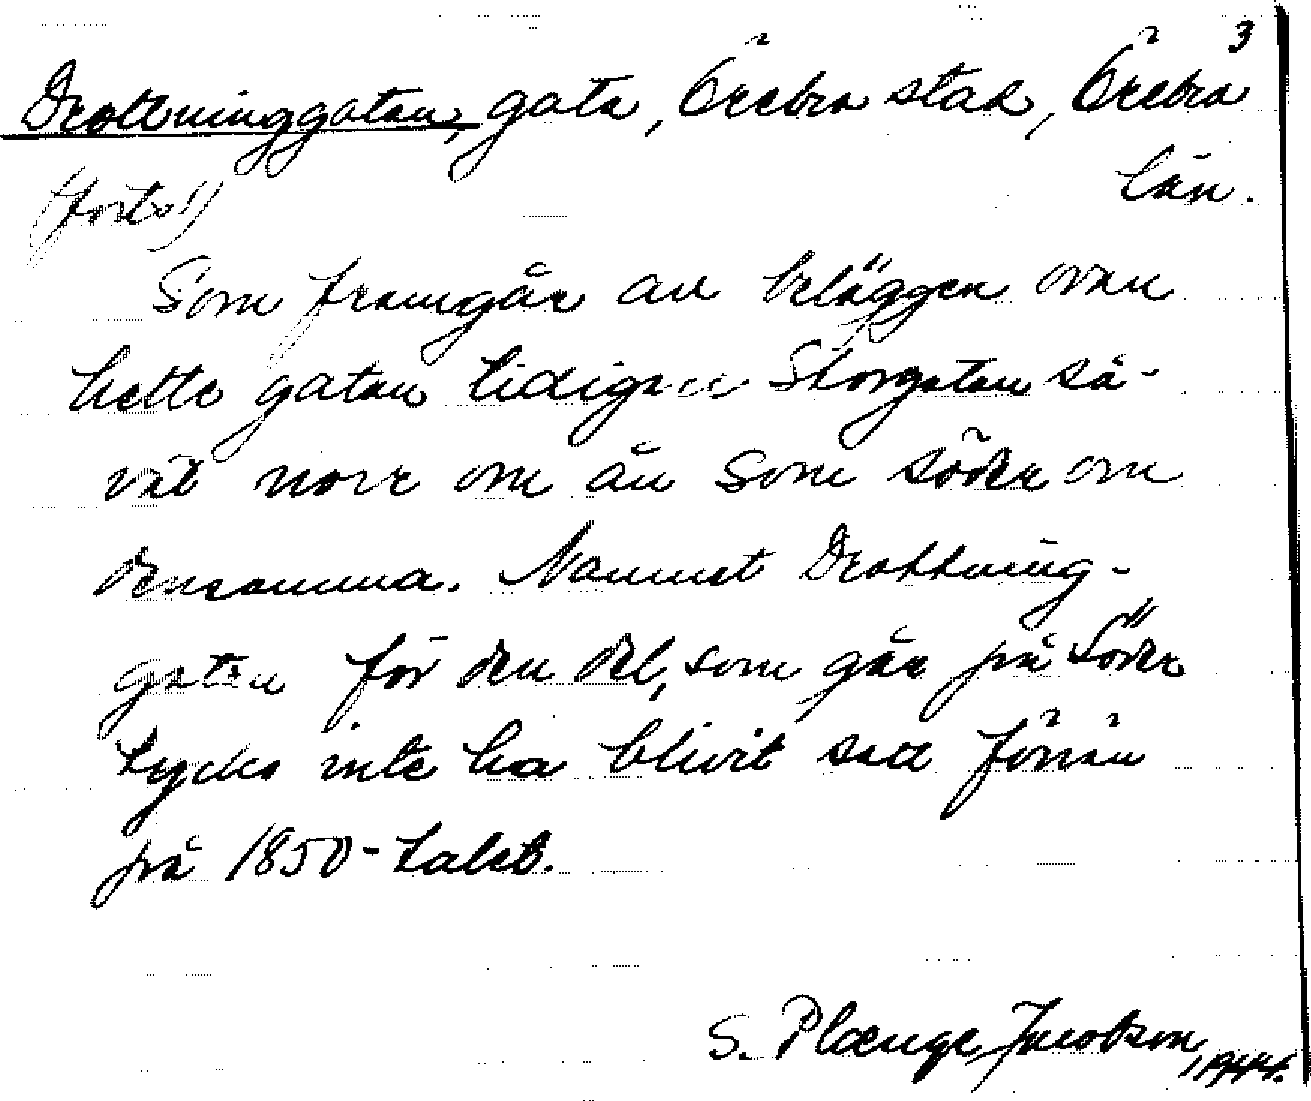 3
Drottninggatan, gata, Örebro stad, Örebro
län.
(forts.)
Som framgår av beläggen ovan
hette gatan tidigare Storgatan så-
väl norr om ån som söder om
densamma. Namnet Drottning-
gatan för den del, som går på Söder
tycks inte ha blivit satt förrän
på 1850-talet.
S. Plænge Jacobson, 1944.